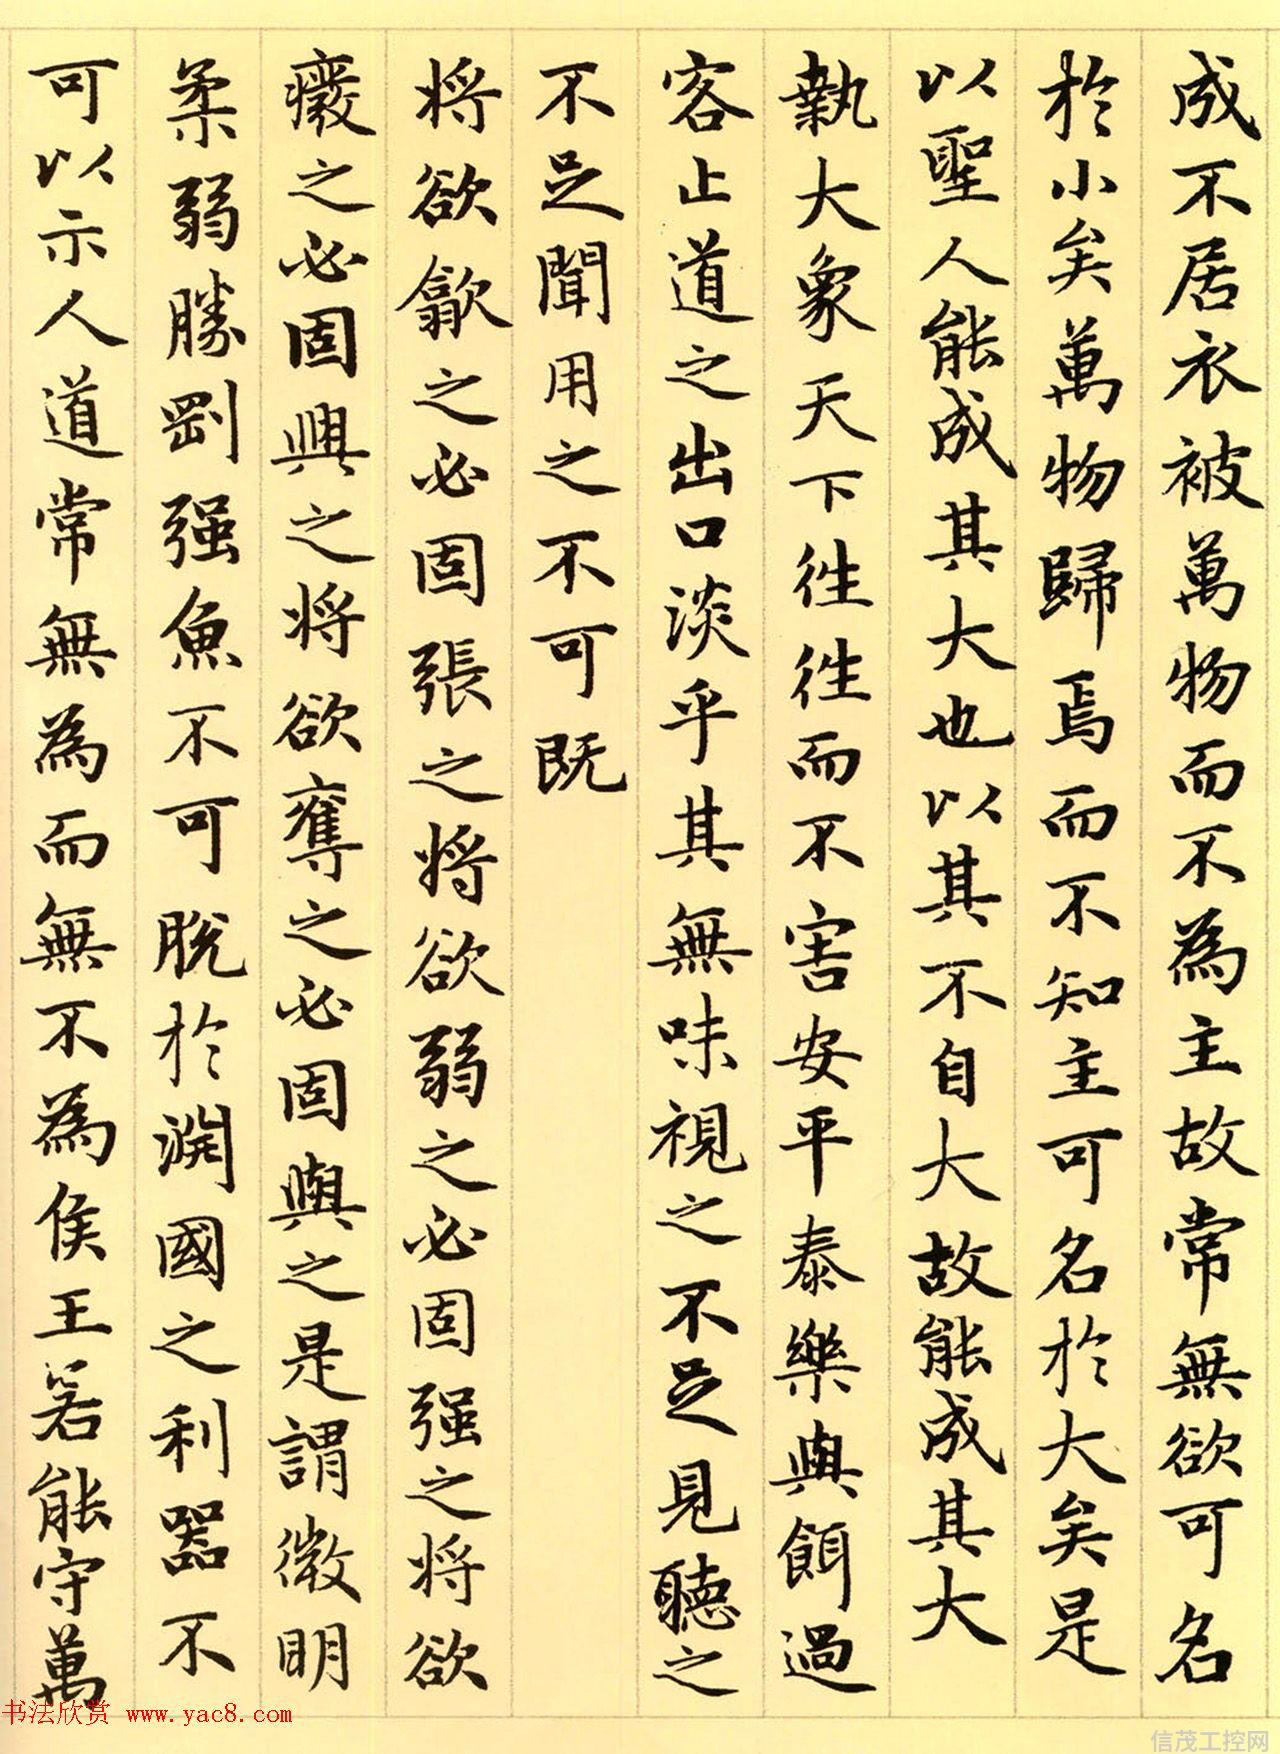 成不居衣被萬物而不為主故常無欲可名
於小矣萬物歸焉而不知主可名於大矣是
以聖人能成其大也以其不自大故能成其大
執大象天下往往而不害安平泰樂與餌過
客止道之出口淡乎其無味視之不足見聽之
不足聞用之不可既
將欲歙之必固張之將欲弱之必固强之將欲
癈之必固興之將欲奪之必固與之是謂微明
柔弱勝剛强魚不可脫於淵國之利器不
可以示人道常無為而無不為侯王若能守萬
书法欣赏 www.yac8.com
信茂工控网